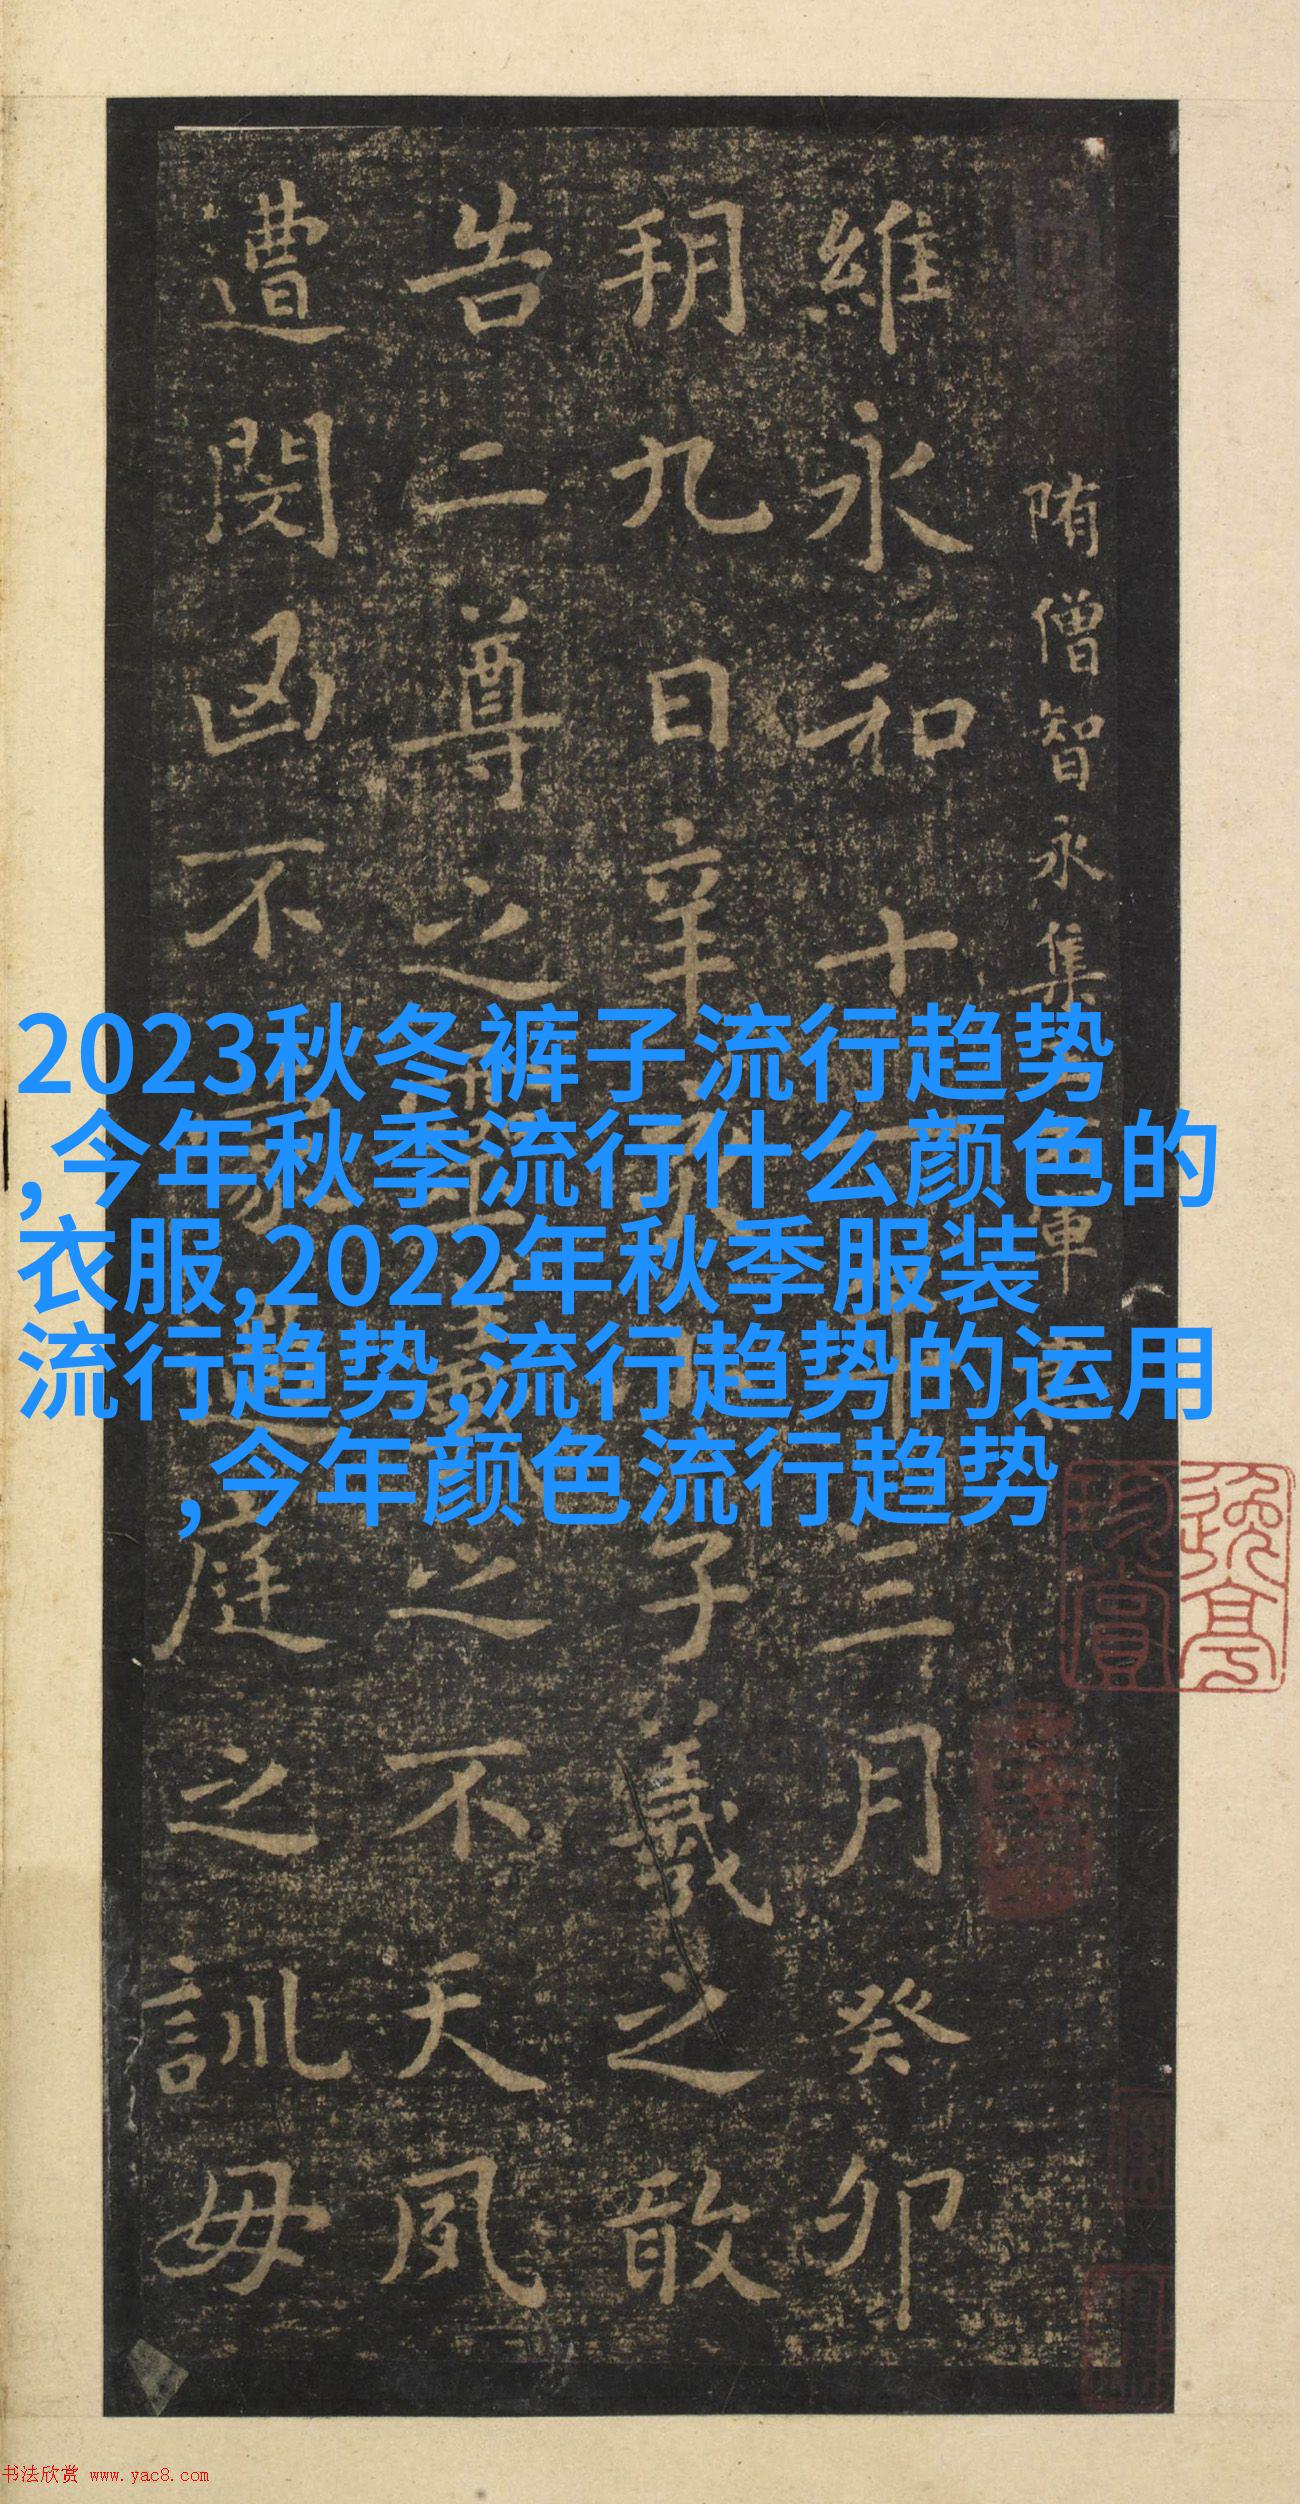 隋僧智永集軍
維永和十三月癸卯
朔九日辛子羲之敢
告二尊之之不天夙
遭閔凶不庭之訓毋
2023秋冬裤子流行趋势
,今年秋季流行什么颜色的
衣服,2022年秋季服装
流行趋势,流行趋势的运用
,今年颜色流行趋势
书法欣赏 www.yac8.com